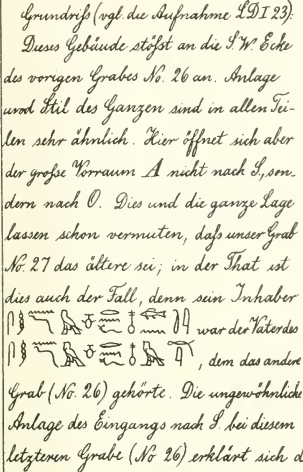 Grundriß (vgl. die Aufnahme LD I 23):
Dieses Gebäude stößt an die S.W. Ecke
des vorigen Grabes No. 26 an. Anlage
und Stil des Ganzen sind in allen Tei-
len sehr ähnlich. Hier öffnet sich aber
der große Vorraum A nicht nach S, son-
dern nach O. Dies und die ganze Lage
lassen schon vermuten, daß unser Grab
No. 27 das ältere sei; in der That ist
dies auch der Fall, denn sein Inhaber
war der Vater des
, dem das andere
Grab (No. 26) gehörte. Die ungewöhnliche
Anlage des Eingangs nach S. bei diesem
letzteren Grabe (No 26) erklärt sich a